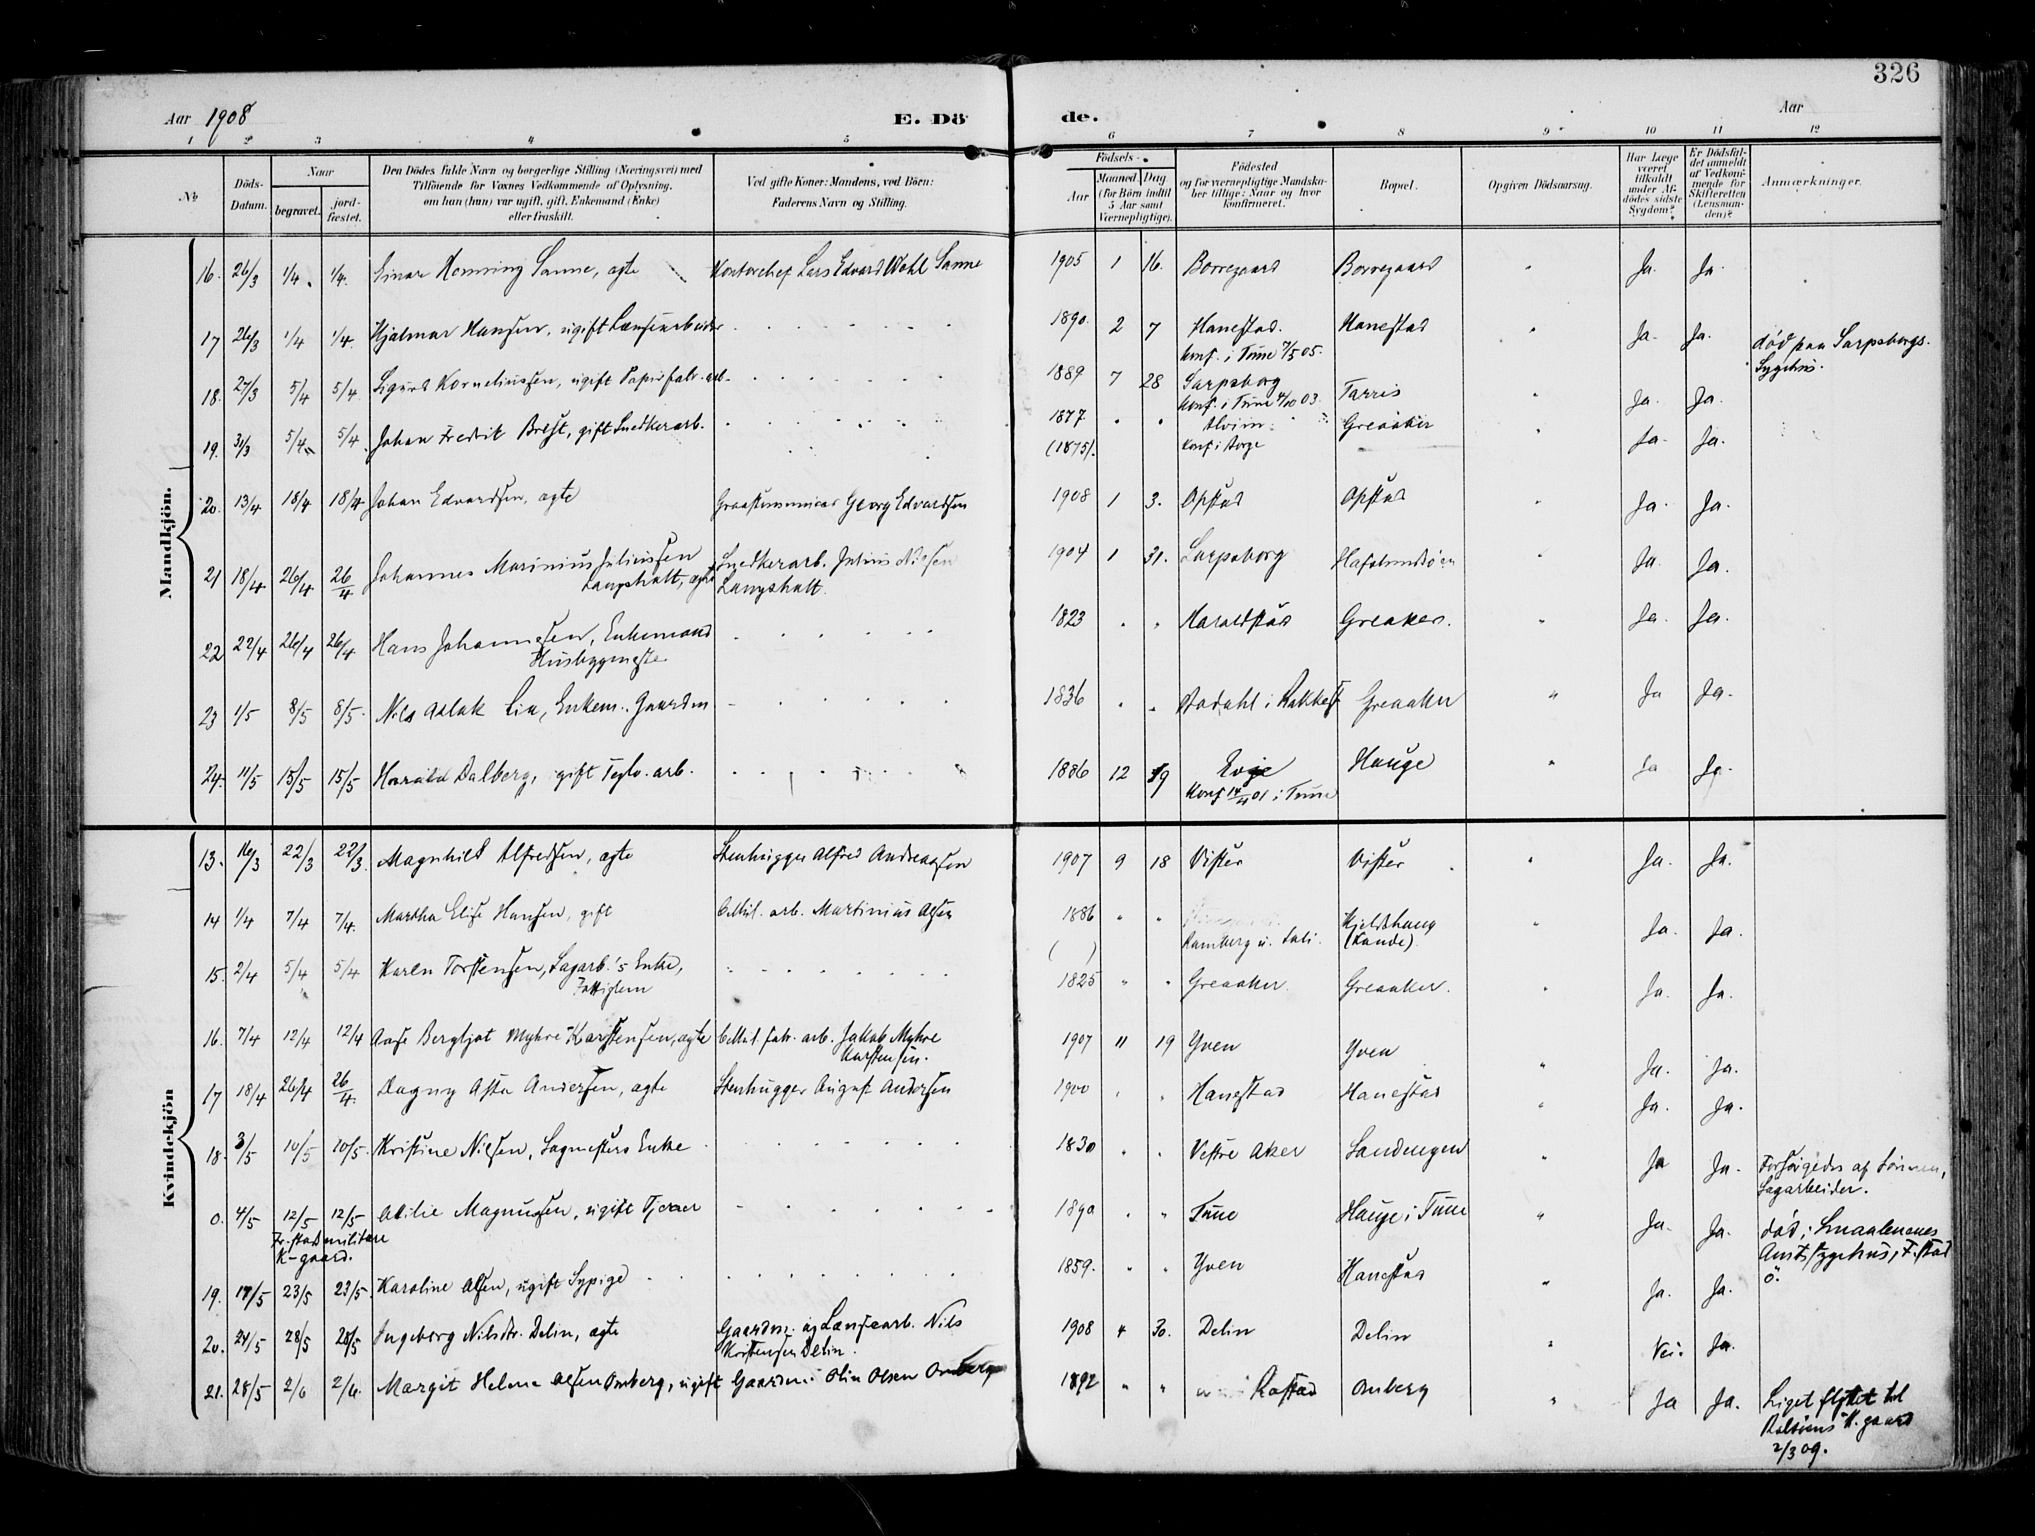 326
Aar 1908 E. Dö de. Aar
1 2 3 4 5 6 7 8 9 10 11 12
No
Döds-Datum.
Naar
begravet.
jord-fæstet.
Den Dödes fulde Navn og borgerlige Stilling (Næringsvei) med
Tilföiende for Voxnes Vedkommende af Oplysning,
om han (hun) var ugift, gift, Enkemand (Enke)
eller fraskilt.
Ved gifte Koner: Mandens, ved Börn:
Faderens Navn og Stilling.
Födsels-
Aar
Maaned. Dag
(for Börn indtil
5 Aar samt
Værnepligtige).
Födested
og for værnepligtige Mandska-
ber tillige: Naar og hvor
konfirmeret.
Bopæl.
Opgiven Dödsaarsag.
Har Læge
været
tilkaldt
under Af-
dödes sidste
Sygdom?
Er Dödsfal-
det anmeldt
af Vedkom-
mende for
Skifteretten
(Lensman-
den)?
Anmærkninger.
Mandkjön.
16. 26/3 1/4 1/4 Einar Henning Sanne, ægte Kontorchef Lars Edvard Wohl Sanne 1905 1 16. Borregaard Borregaard " Ja. Ja.
17 26/3 1/4 1/4. Hjalmar Hansen, ugift Lænsearbeider 1890. 2 7 Hanestad. Hanestad " Ja. Ja. død paa Sarpsborgs.
konf. i Tune 7/5 05. Sygehus.
18. 27/3 5/4 5/4 Sigurd Korneliussen, ugift Papirfabr. arb. 1889 7 28 Sarpsborg Tarris " Ja. Ja.
konf. i Tune 4/10 03.
19. 31/3 5/4 5/4. Johan Fredrik Brest, gift Snedkerarb. 1877 " " Alvim Greaaker " Ja. Ja.
(1875). konf. i Borge
20. 13/4 18/4 18/4 Johan Edvardsen, ægte Graastensminer Georg Edvardsen 1908 1 3. Opstad Opstad " Ja. Ja.
21 18/4 26/4 26/4 Johannes Marinius Juliussen Snedkerarb. Julius Nilsen 1904 1 31. Sarpsborg Hafslundsöen " Ja. Ja.
Langshatt, ægte Langshatt.
22 22/4 26/4 26/4 Hans Johannesen, Enkemand 1823 " " Haraldstad Greaker. " Ja. Ja.
Husbygmester
23 1/5 8/5 8/5. Nils Aslak Lie, Enkem. Gaardm 1836 " " Dodahl i Rakkest Greaaker " Ja Ja.
24. 11/5 15/5 15/5 Harald Dalberg, gift Teglv. arb. 1886 12 19 Evje Hauge " Ja Ja.
Konf 14/4 01 i Tune
Kvindekjön
13. 16/3 22/3 22/3. Magnhild Alfredsen, ægte Stenhugger Alfred Andreassen 1907 9 18 Vister Vister " Ja. Ja.
14 1/4 7/4 7/4. Martha Elise Hansen, gift Cellul. arb. Martinius Olsen 1886 " " Kjeldshaug " Ja. Ja.
( ) Ramberg u. Sali. (Sande).
15. 2/4 5/4 5/4 Karen Torstensen, Sagarb.'s Enke, 1825 " " Greaaker. Greaaker. " Ja. Ja.
Fattiglem
16. 7/4 12/4 12/4 Aase Bergljot Myhre Karstensen, ægte Cellul. fabr. arb. Jakob Myhre 1907 11 19 Yven Yven " Ja. Ja.
Karstensen.
17 18/4 26/4 26/4. Dagny Asta Andersen, ægte Stenhugger August Andersen 1900 " " Hanestad Hanestad " Ja. Ja.
18. 3/5 10/5 10/5. Kristine Nilsen, Sagmesters Enke 1830 " " Vestre Aker Sandengen " Ja Ja. Forsörgedes af Sönnen,
Sagarbeider.
0. 4/5 12/5 12/5 Otilie Magnussen, ugift Tjener 1890 " " Tune Hauge i Tune " Ja. Ja. død i Smaalenenes
Fr.stad militære Amts sygehus, F.stad
K-gaard. ö.
19. 17/5 23/5 23/5. Karoline Olsen, ugift Sypige 1859. " " Yven Hanestad " Ja. Ja.
20. 24/5 28/5 28/5 Ingeborg Nilsdtr. Delin, ægte Gaardm. og Lænsearb. Nils 1908 4 30. Delin Delin " Nei. Ja.
Kristensen Delin.
21. 28/5 2/6 2/6. Margit Helene Olsen Omberg, ugift Gaardm. Olin Olsen Omberg 1892 " " Rostad Omberg " Ja Ja. Liget flyttet til
Rolvsöens K. gaard
2/3 09.